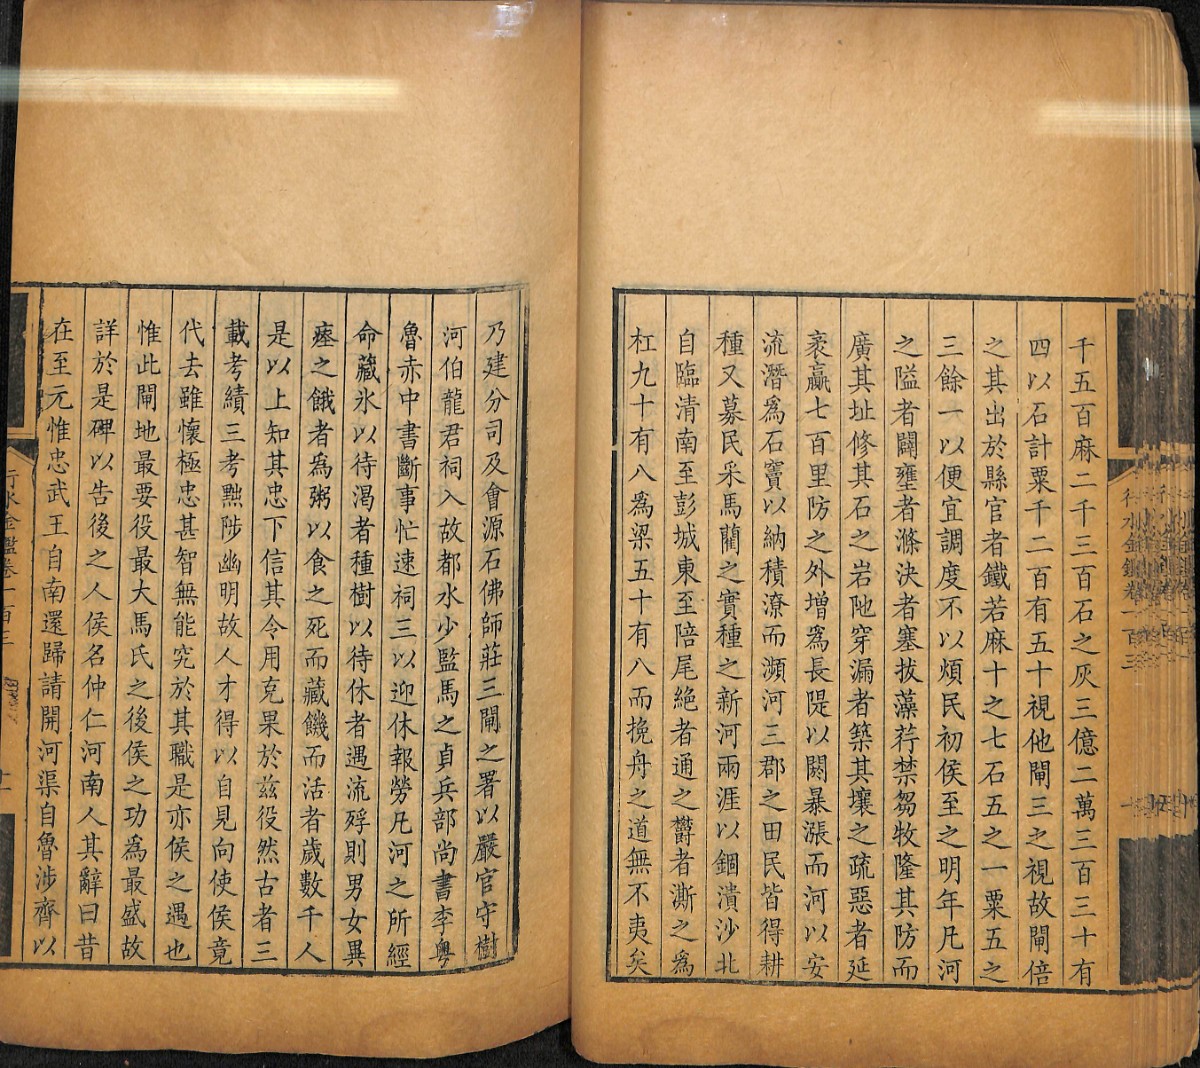 千五百麻二千三百石之灰三億二萬三百三十有
四以石計粟千二百有五十視他閘三之視故閘倍
之其出於縣官者鐵若麻十之七石五之一粟五之
三餘一以便宜調度不以煩民初侯至之明年凡河
之隘者闢壅者滌決者塞拔藻荇禁芻牧隆其防而
廣其址修其石之岩阤穿漏者築其壤之疏惡者延
袤贏七百里防之外增為長隄以閼暴漲而河以安
流潛為石竇以納積潦而瀕河三郡之田民皆得耕
種又募民采馬藺之實種之新河兩涯以錮潰沙北
自臨清南至彭城東至陪尾絕者通之鬱者澌之為
杠九十有八為梁五十有八而挽舟之道無不夷矣
乃建分司及會源石佛師莊三閘之署以嚴官守樹
河伯龍君祠入故都水少監馬之貞兵部尚書李粵
魯赤中書斷事忙速祠三以迎休報勞凡河之所經
命藏氷以待渴者種樹以待休者遇流殍則男女異
瘞之餓者為粥以食之死而藏饑而活者歲數千人
是以上知其忠下信其令用克果於茲役然古者三
載考績三考黜陟幽明故人才得以自見向使侯竟
代去雖懷極忠甚智無能究於其職是亦侯之遇也
惟此閘地最要役最大馬氏之後侯之功為最盛故
詳於是碑以告後之人侯名仲仁河南人其辭曰昔
在至元惟忠武王自南還歸請開河渠自魯涉齊以
行水金鑑卷一百三